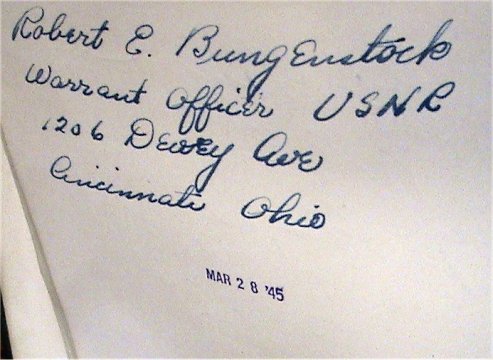 Robert E. Bungenstock
Warrant Officer USNR
1206 Dewey Ave
Cincinnati Ohio
MAR 28 '45